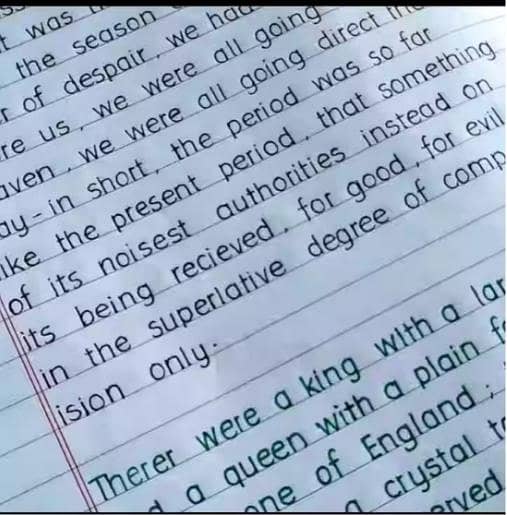 t was
the season
r of despair, we had
re us, we were all going
aven, we were all going direct
ay - in short, the period was so far
ike the present period, that something
of its noisest authorities instead on
its being recieved, for good, for evil
in the superlative degree of comp
ision only.
Therer were a king with a lar
d a queen with a plain f
one of England ;
a crystal t
erved